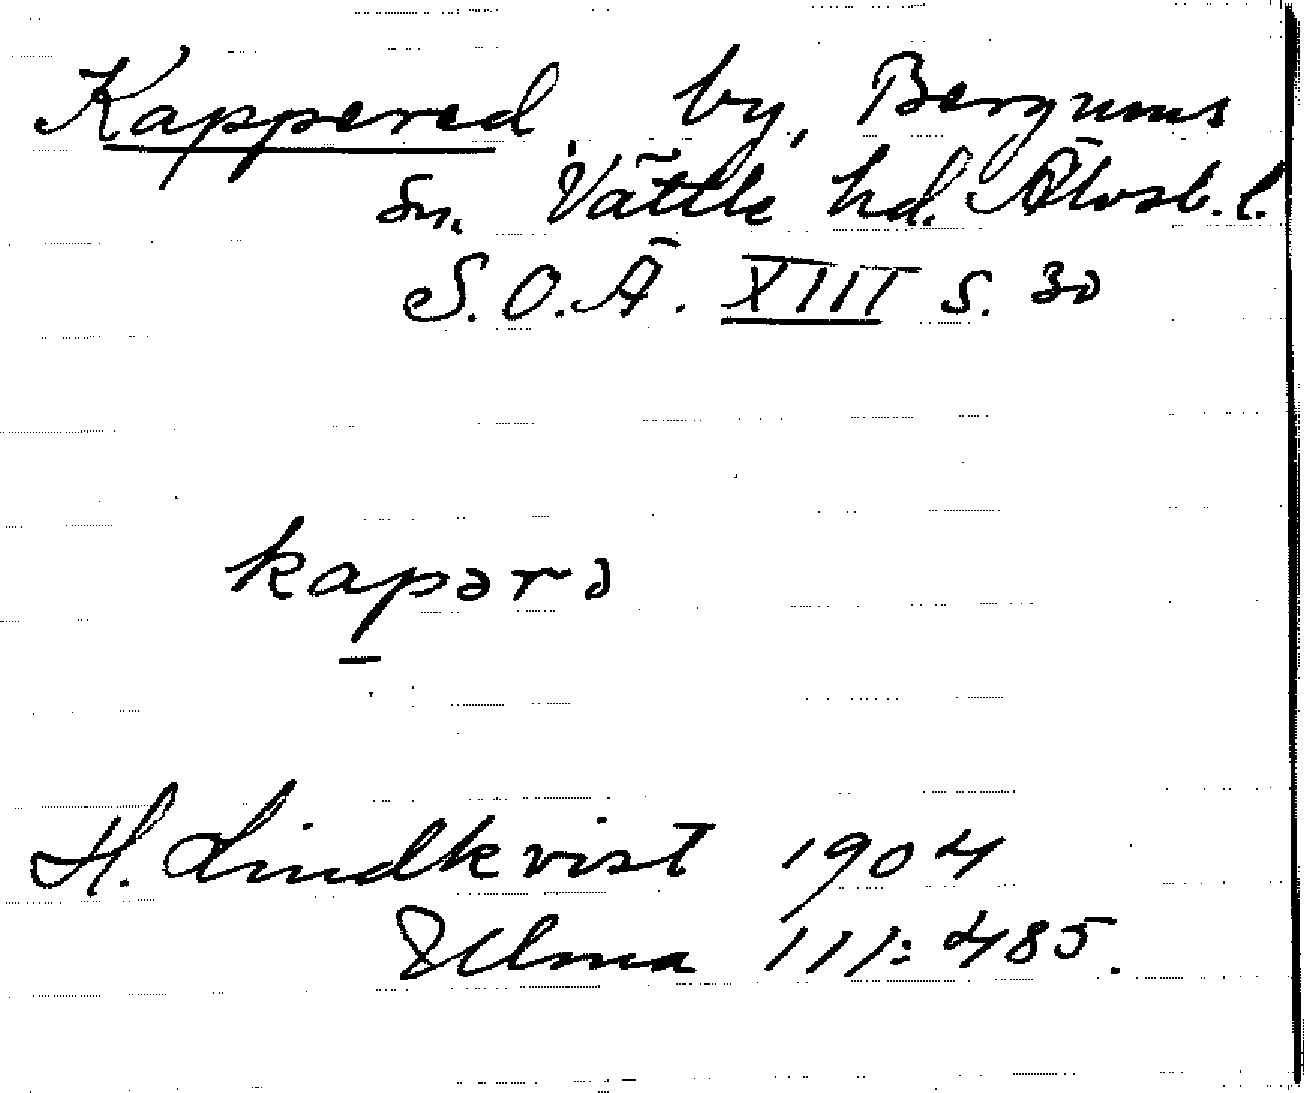 Kappered, by, Bergums
sn. Vättle hd. Älvsb. l.
S.O.Ä. XIII s. 30
kapərə
H. Lindkvist 1904
Ulma 111:485.